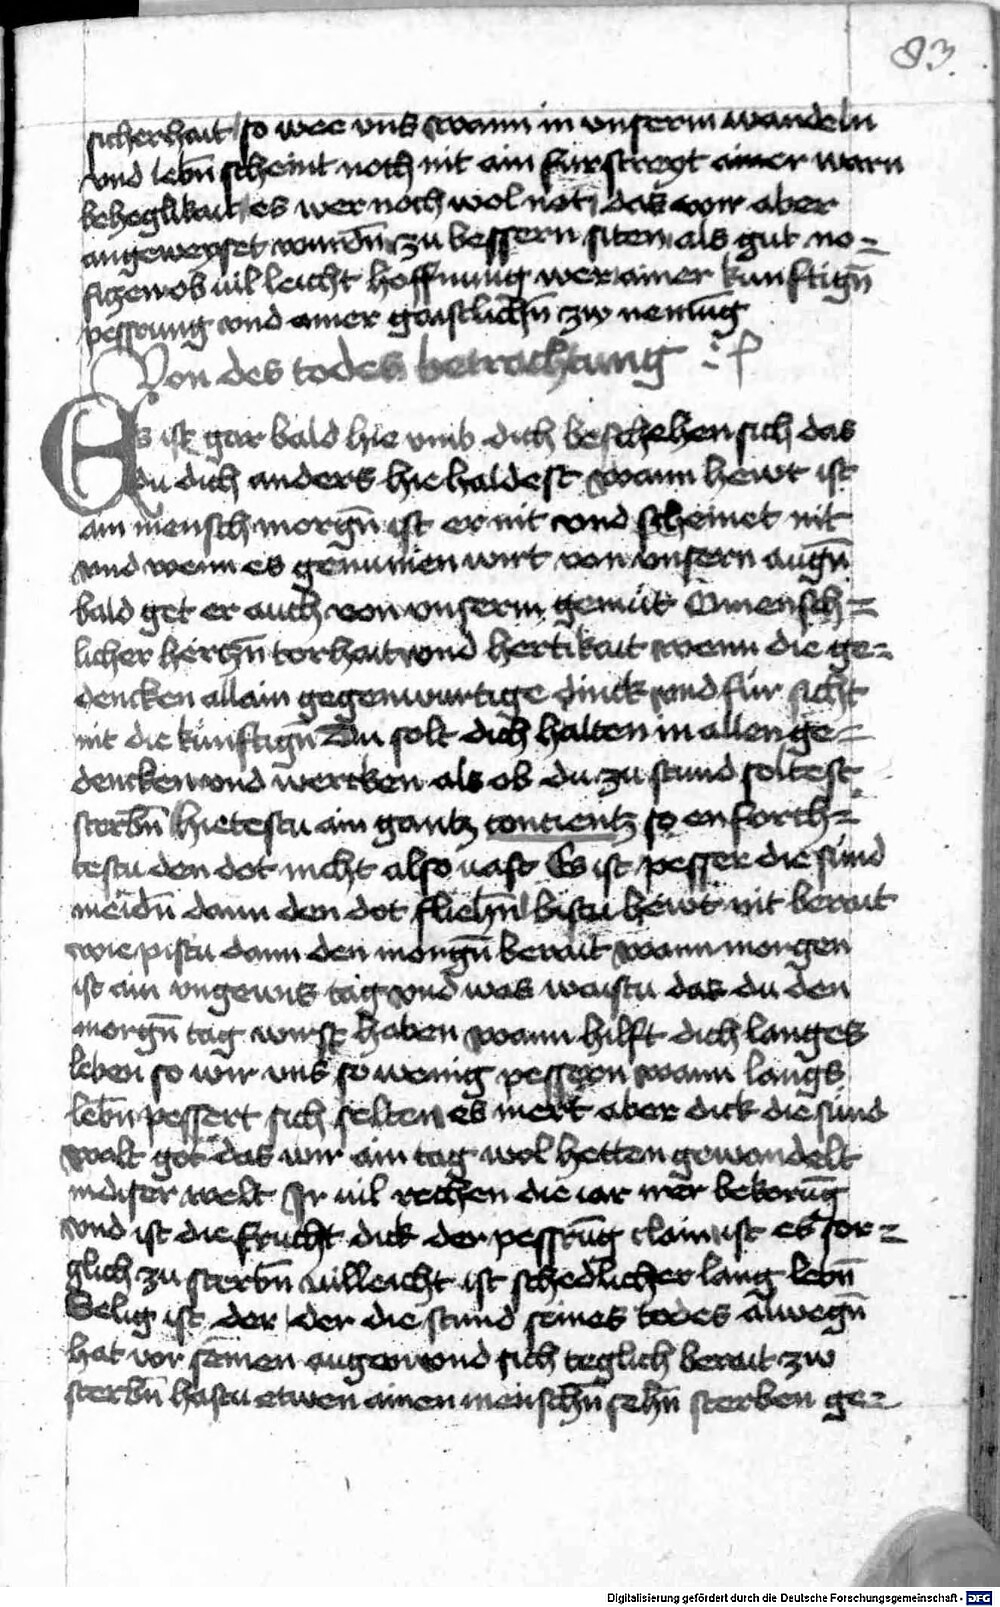 83.
sicherhait so wee vns wann in vnserm wandeln
vnd lebn̄ scheint noch nit ain furstreyt ainer warn
beheglikait es wer noch wol not das wir aber
angeweyset wurdn̄ zu bessern siten als gut no=
fizen ob uil leicht hoffnung wer ainer kunftign̄
pessrung vnd ainer gaistlichn̄ zw nemūg
Von des todes betrachtung
Es ist gar bald hie vmb dich beschehen sich das
du dich anders hie haldest wann hewt ist
ain mensch morgn̄ ist er nit vnd scheinet nit
vnd wenn es genumen wirt von vnsern augn̄
bald get er auch von vnserm gemüt O mensch=
licher herczn̄ torhait vnd hertikait wenn die ge=
dencken allain gegenwurtige dinck vnd für sicht
nit die künftign̄ Du solt dich halten in allen ge=
dencken vnd wercken als ob du zu stund soltest
sterbn̄ hietestu ain gantz contientz so enforch=
testu den dot nicht also uast Es ist pesser die sünd
meidn̄ dann den dot fliehn̄ bistu hewt nit berait
wie pistu dann den morgn̄ berait wann morgen
ist ain vngewis tag vnd was waistu das du den
morgn̄ tag wirst haben wann hilft dich langes
leben so wir vns so wenig pessern wann langs
lebn̄ pessert sich selten es mert aber dick die sünd
wolt got das wir ain tag wol hetten gewandelt
in diser welt Ir uil rechen die iar irer bekerūg
vnd ist die frucht dick der pessrūg clain ist es sor=
glich zu sterbn̄ uilleicht ist schedlicher lang lebn̄
Selig ist der der die stund seines todes alwegn̄
hat vor seinen augen vnd sich teglich berait zw
sterbn̄ hastu etwen ainen menschn̄ sehn̄ sterben ge=
Digitalisierung gefördert durch die Deutsche Forschungsgemeinschaft - DFG